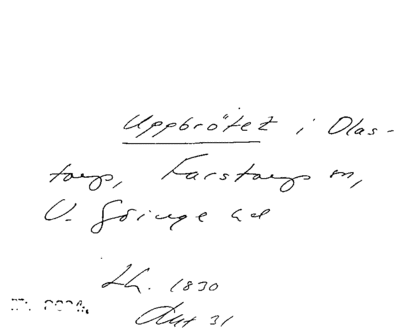 Uppbrötet i Olas-
torp, Farstorps sn,
V. Göinge hd
Lh. 1830
Akt 31